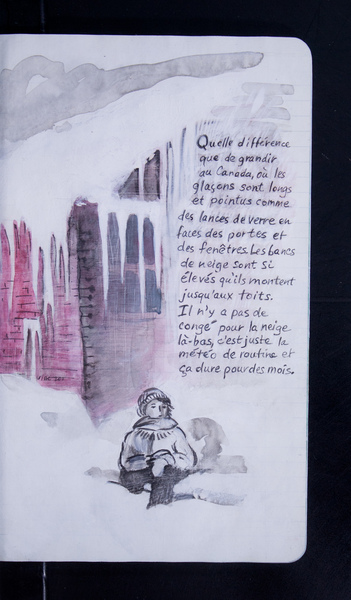 Quelle différence
que de grandir
au Canada, où les
glaçons sont longs
et pointus comme
des lances de verre en
faces des portes et
des fenêtres. Les bancs
de neige sont si
élevés qu'ils montent
jusqu'aux toits.
Il n'y a pas de
congé pour la neige
là-bas, c'est juste la
météo de routine et
ça dure pour des mois.